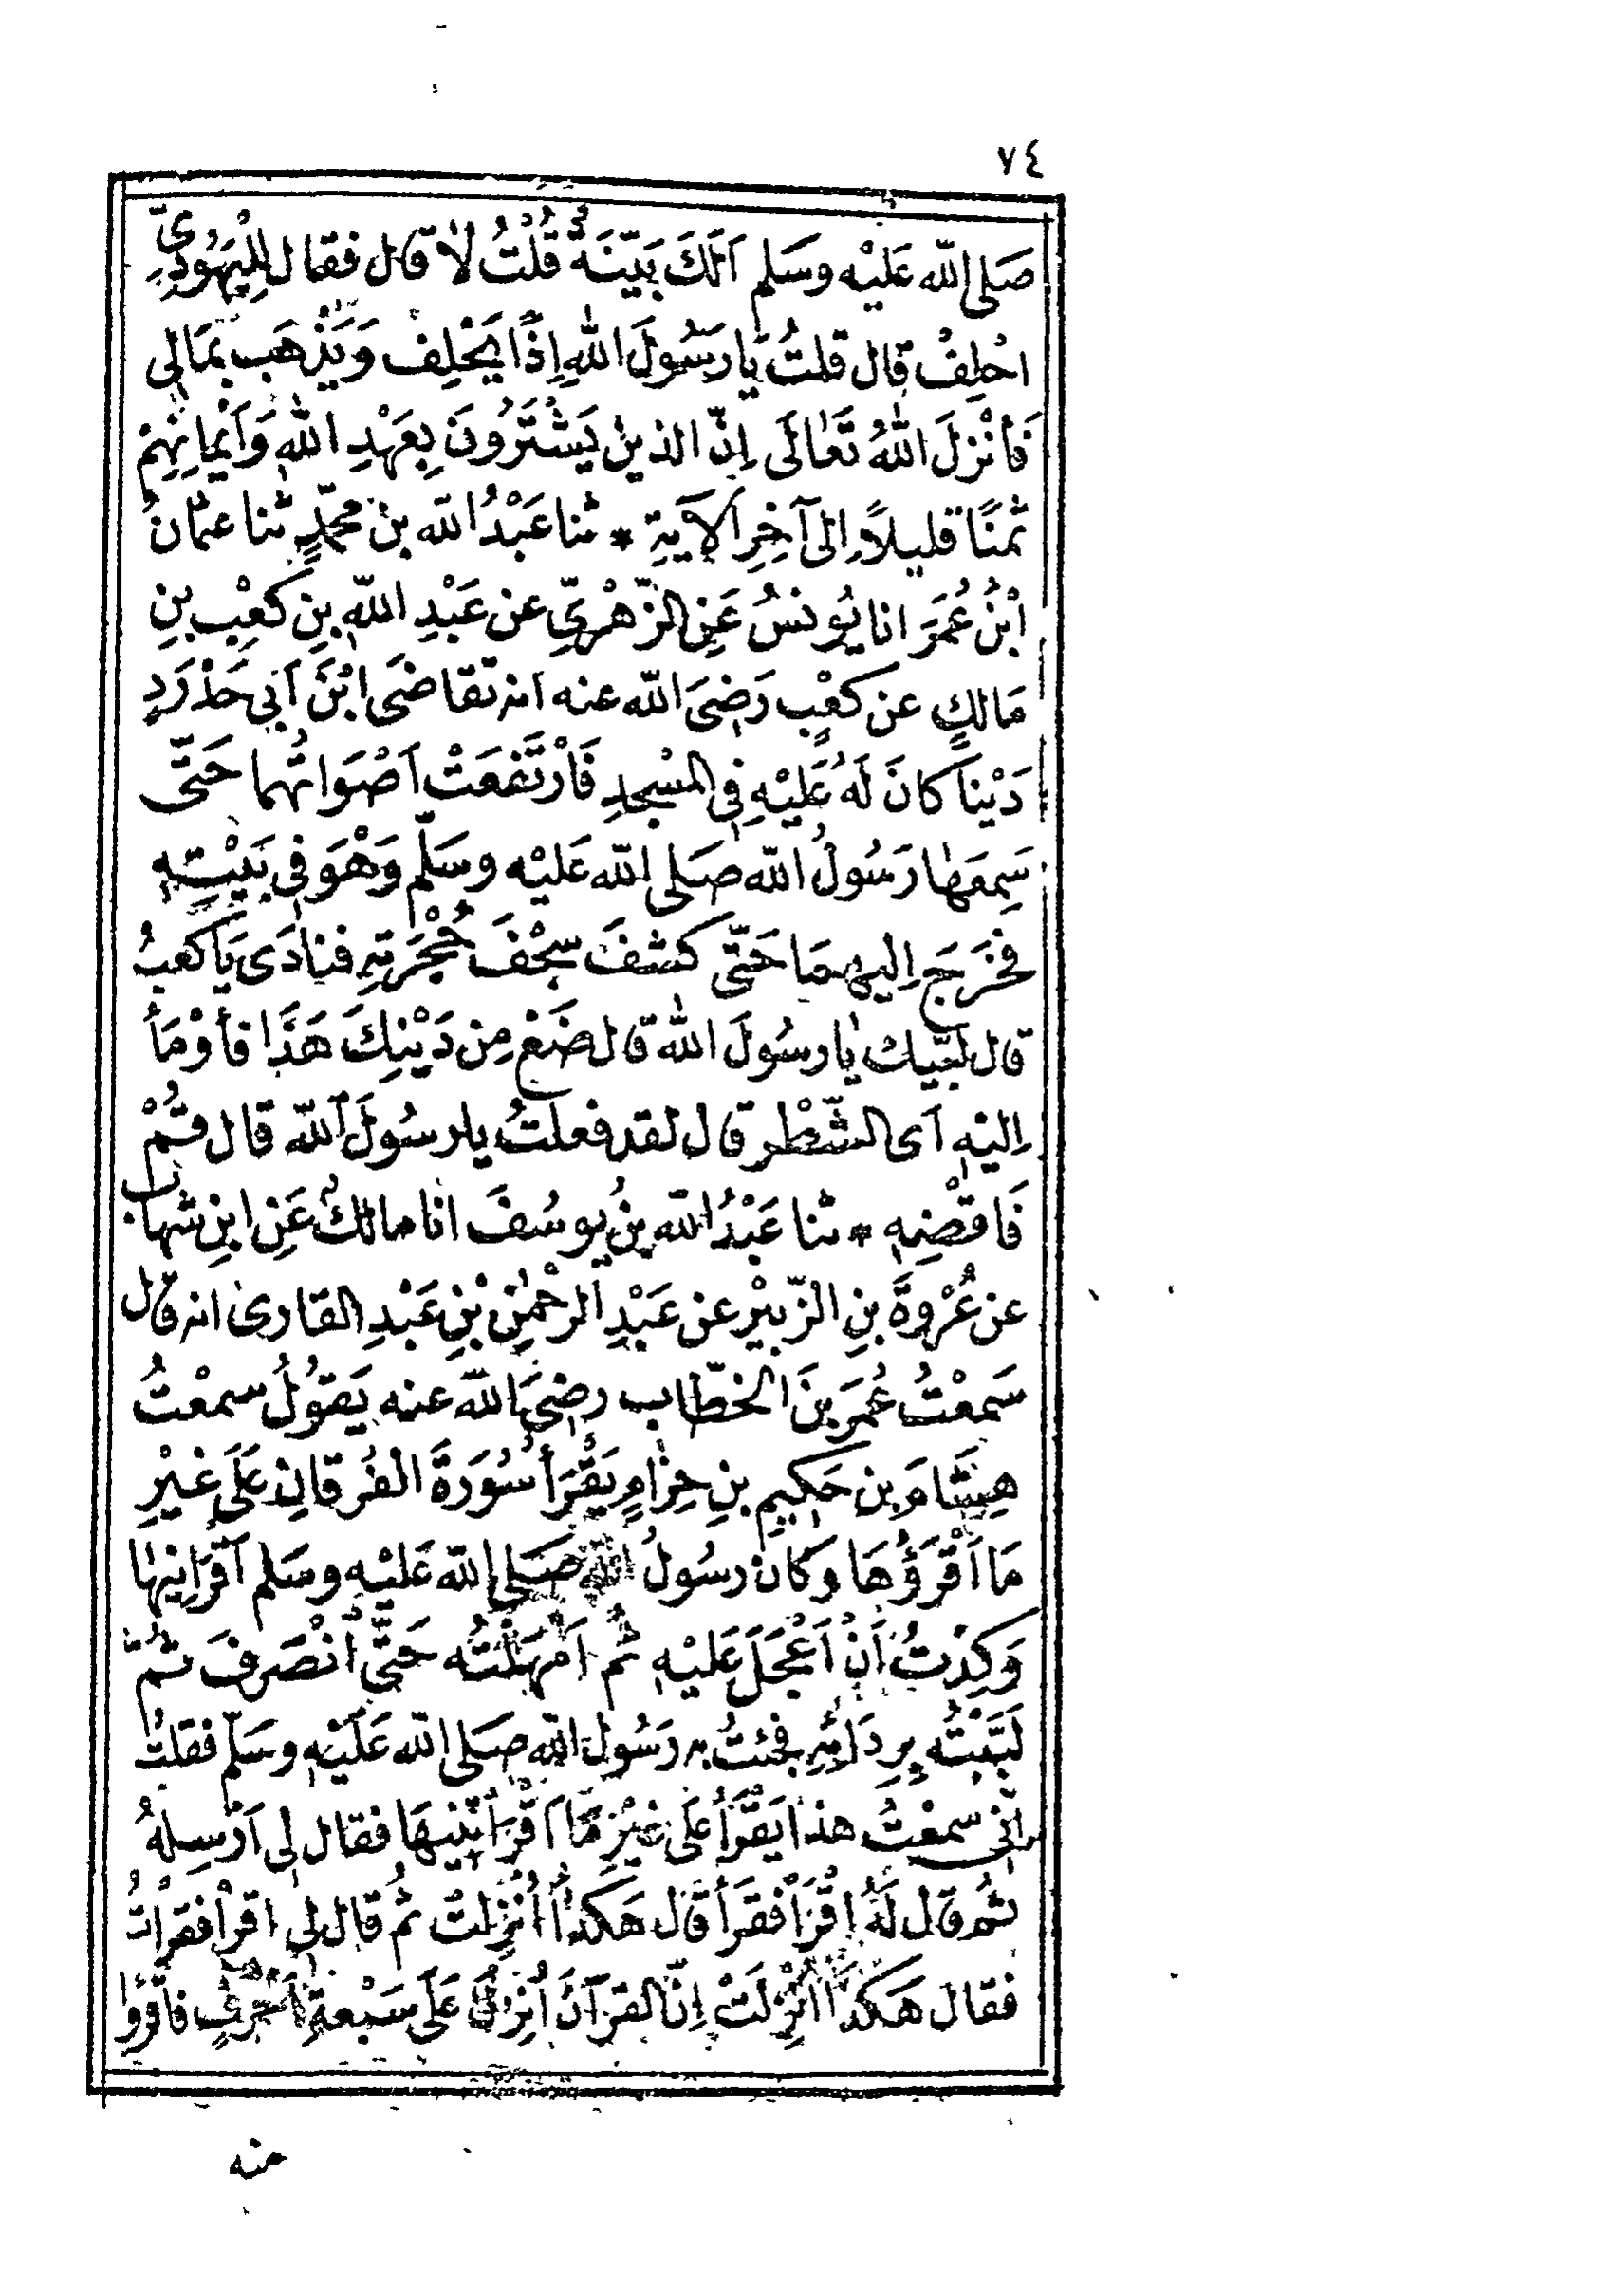 ٧٤
صَلى اللّه عَلَيْه وسَلم اَلَكَ بَيّنَةٌ قُلْتُ لاٰ قال فقال لِلْيَهُودِيِّ
احْلِفْ قال قلتُ يٰا رَسُولَ اللّٰهِ اِذًا يَحْلِف وَيَذْهَب بمَالِي
فَأنْزلَ اللّٰهُ تَعٰالَى اِنّ الذينَ يَشْتَرُونَ بِعَهْدِ اللّٰهِ وَاَيْمانِهِمْ
ثمنًا قليلاً اِلى آخِرِ الآيَةِ * ثنا عَبْدُ اللّه بن محمّدٍ ثنا عثمانُ
ابْنُ عُمَرَ انا يُونسُ عَنِ الزّهْرِيّ عن عَبْدِ اللّٰهِ بنِ كَعْبِ بنِ
مَالكٍ عن كعْبٍ رَضِيَ اللّه عنه انه تقاضَى ابْنَ اَبي حَدْرَدٍ
دَيْنا كانَ لَهُ عَلَيْهِ فِى المسْجدِ فَارْتَفعَتْ اَصْوَاتُهما حَتّى
سَمِعَهٰا رَسُولُ اللّه صَلى اللّه عَليْه وسَلّم وَهْوَ فِى بَيْتِهِ
فخرَجَ اِليهمَا حَتّى كَشفَ سِجْفَ حُجْرَتِهِ فنادَى يَا كعبُ
قال لَبّيك يٰا رسُولَ اللّٰه قال ضَعْ مِن دَيْنِكَ هَذَا فأوْمَأ
اِليْهِ اَى الشّطْرَ قال لقد فعلتُ يا رسُولَ اللّه قال قُمْ
فَاقْضِهِ * ثنا عَبْدُ اللّه بنُ يوسُفَ انا مالكٌ عَنِ ابنِ شهابٍ
عن عُرْوَةَ بنِ الزّبيْرِ عن عَبْدِ الرحْمٰنِ بْنِ عَبْدِ القارى انه قال
سَمعْتُ عُمَرَ بنَ الخطّاب رضِىَ اللّه عنه يَقُولُ سمعْتُ
هِشَامَ بن حَكِيمِ بنِ حِزٰامٍ يَقْرَأ سُورَةَ الفُرقانِ عَلَى غيْرِ
مَا اَقْرَؤُهَا وَكان رسُولُ اللّه صَلى اللّه عَليْهِ وسَلم اَقرَانِيهٰا
وَكِدْتُ اَنْ اَعْجَلَ عَليْهِ ثُم اَمْهَلْتُه حَتَّى انْصَرفَ ثمَّ
لَبَّبْتُه بِرِدَائِهِ فجئتُ به رَسُولَ اللّه صَلى اللّه عَلَيْهِ وسَلّم فقلتُ
اِنّى سمعْتُ هذا يَقْرَأ عَلَى غيْرِ مَا اَقْرَأتَنِيهَا فقال لِى اَرْسِلهُ
ثُم قال لَهُ اِقْرَأ فقرَأ قال هَكَذَا اُنْزِلتْ ثُم قال لِى اقرأ فقرَأتُ
فقال هَكذَا اُنْزِلَتْ اِنّ القرآنَ اُنْزِلَ عَلَى سَبْعَةِ اَحْرُفٍ فاقرَؤا
منه